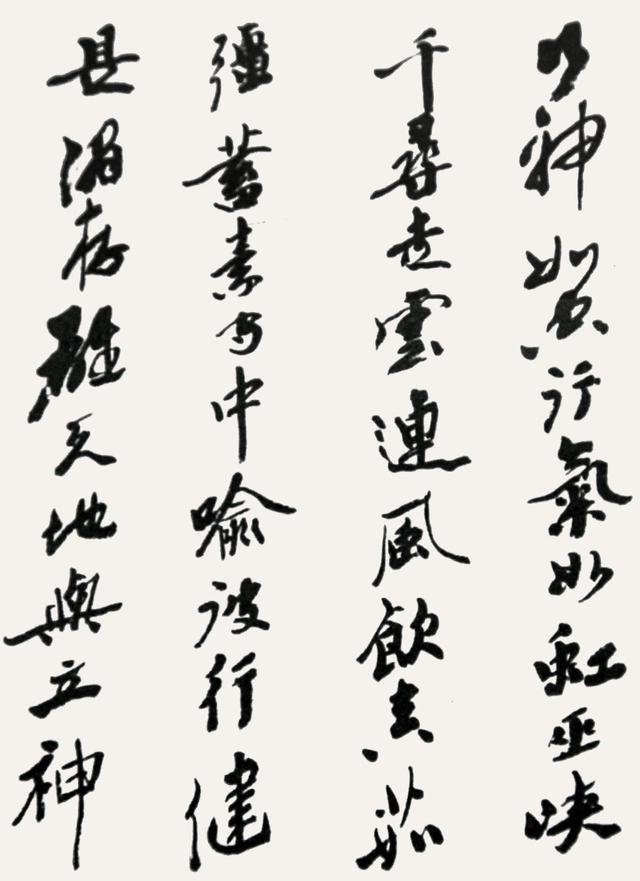 行神如空行氣如虹巫峽
千尋走雲連風飲真茹
彊蓄素守中喻彼行健
是謂存雄天地與立神